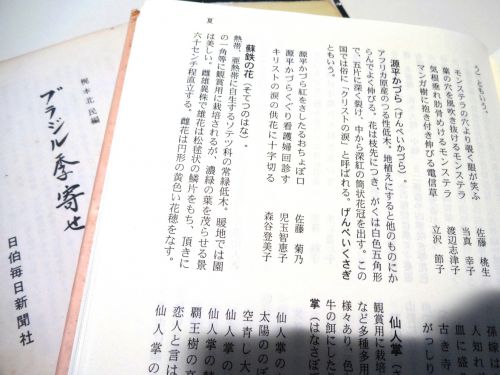 夏
モンステラの穴より覗く眼が笑ふ　佐藤 桃生
葉の穴を風吹き抜けるモンステラ　当真 幸子
気根垂れ肋骨めけるモンステラ　渡辺志津子
マンガ樹に抱き付き伸びる電信草　立沢 節子
源平かづら（げんぺいかづら）。
アフリカ原産のつる性低木。地植えにすると他のものにか
らんでよく伸びる。花は枝先につき、がくは白色五角形
で、五片に深く裂け、中から深紅の筒状花冠を出す。この
国では俗に「クリストの涙」と呼ばれる。げんぺいくさぎ
ともいう。
源平かづら紅をさしたるおちょぼ口　佐藤 菊乃
源平かづらくぐり看護婦回診す　児玉智恵子
キリストの涙の供花に十字切る　森谷登美子
蘇鉄の花（そてつのはな）。
熱帯、亜熱帯に自生するソテツ科の常緑低木。暖地では園
の一角等に観賞用に栽培されるが、濃緑の葉を茂らせる景
は美しい。雌雄異株で雄花は松毬状の鱗片をもち、頂きに
六十センチ程直立する。雌花は円形の黄色い花穂をなす。
孫嫁は
人知れ
皿に盛
古き寺
がっしり
仙人掌（
観賞用に栽培
など多種多用
様々あり、色
牛の餌にした
掌（はなさぼ
仙人掌
太陽のの
空青し大
仙人掌の
覇王樹の
恋人と言は
仙人掌の
梶本北民編
ブラジル季寄せ
日伯毎日新聞社